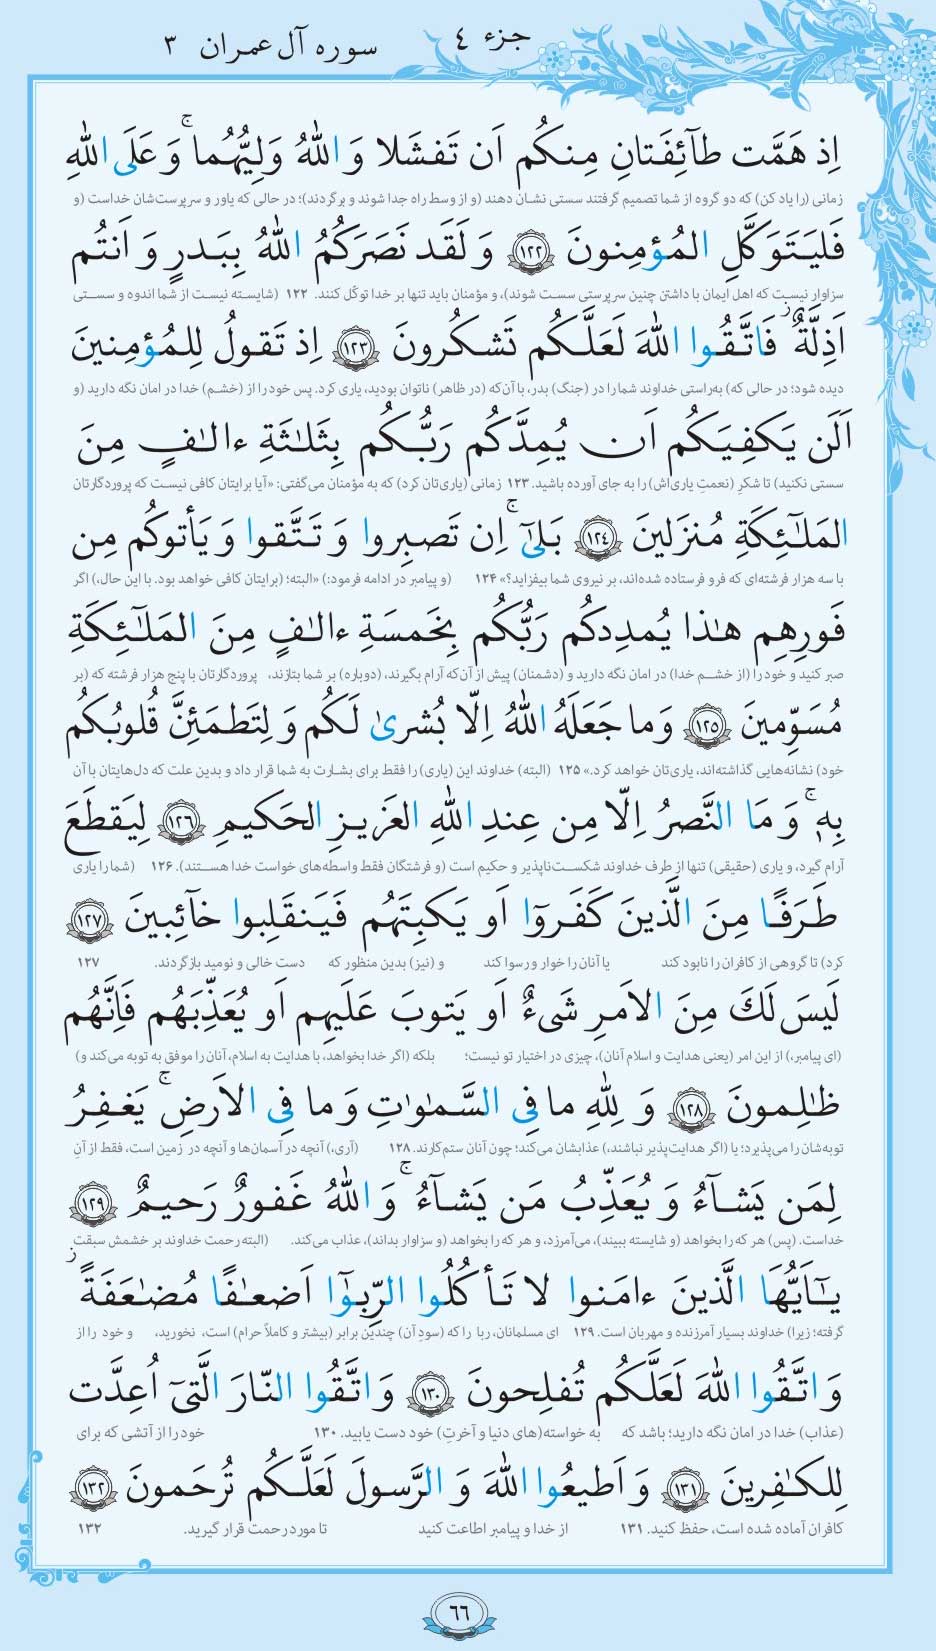 جزء ٤
سوره آل عمران ٣
اِذ هَمَّت طآئِفَتانِ مِنكُم اَن تَفشَلا وَ اللهُ وَلِيُّهُما ۚ وَ عَلَى اللهِ
زمانی (را یاد کن) که دو گروه از شما تصمیم گرفتند سستی نشان دهند (و از وسط راه جدا شوند و برگردند)؛ در حالی که یاور و سرپرست‌شان خداست (و
فَليَتَوَكَّلِ المُؤمِنونَ ﴿١٢٢﴾ وَ لَقَد نَصَرَكُمُ اللهُ بِبَدرٍ وَ اَنتُم
سزاوار نیست که اهل ایمان با داشتن چنین سرپرستی سست شوند)، و مؤمنان باید تنها بر خدا توکّل کنند. ۱۲۲ (شایسته نیست از شما اندوه و سستی
اَذِلَّةٌ ز فَاتَّقُوا اللهَ لَعَلَّكُم تَشكُرونَ ﴿١٢٣﴾ اِذ تَقولُ لِلمُؤمِنينَ
دیده شود؛ در حالی که) به‌راستی خداوند شما را در (جنگ) بدر، با آن‌که (در ظاهر) ناتوان بودید، یاری کرد. پس خود را از (خشمِ) خدا در امان نگه دارید (و
اَلَن يَكفِيَكُم اَن يُمِدَّكُم رَبُّكُم بِثَلـٰثَةِ ءالـٰفٍ مِنَ
سستی نکنید) تا شکرِ (نعمتِ یاری‌اش) را به جای آورده باشید. ۱۲۳ زمانی (یاری‌تان کرد) که به مؤمنان می‌گفتی: «آیا برایتان کافی نیست که پروردگارتان
المَلـٰٓئِكَةِ مُنزَلينَ ﴿١٢٤﴾ بَلىٰٓ ۚ اِن تَصبِروا وَ تَتَّقوا وَ يَأتوكُم مِن
با سه هزار فرشته‌ای که فرو فرستاده شده‌اند، بر نیروی شما بیفزاید؟» ۱۲۴ (و پیامبر در ادامه فرمود:) «البته؛ (برایتان کافی خواهد بود. با این حال،) اگر
فَورِهِم هـٰذا يُمدِدكُم رَبُّكُم بِخَمسَةِ ءالـٰفٍ مِنَ المَلـٰٓئِكَةِ
صبر کنید و خود را (از خشم خدا) در امان نگه دارید و (دشمنان) پیش از آن‌که آرام بگیرند، (دوباره) بر شما بتازند، پروردگارتان با پنج هزار فرشته که (بر
مُسَوِّمينَ ﴿١٢٥﴾ وَ ما جَعَلَهُ اللهُ اِلّا بُشرىٰ لَكُم وَ لِتَطمَئِنَّ قُلوبُكُم
خود) نشانه‌هایی گذاشته‌اند، یاری‌تان خواهد کرد.» ۱۲۵ (البته) خداوند این (یاری) را فقط برای بشارت به شما قرار داد و بدین علت که دل‌هایتان با آن
بِهٖ ۚ وَ مَا النَّصرُ اِلّا مِن عِندِ اللهِ العَزيزِ الحَكيمِ ﴿١٢٦﴾ لِيَقطَعَ
آرام گیرد، و یاری (حقیقی) تنها از طرف خداوند شکست‌ناپذیر و حکیم است (و فرشتگان فقط واسطه‌های خواست خدا هستند). ۱۲۶ (شما را یاری
طَرَفًا مِنَ الَّذينَ كَفَروٓا اَو يَكبِتَهُم فَيَنقَلِبوا خآئِبينَ ﴿١٢٧﴾
کرد) تا گروهی از کافران را نابود کند یا آنان را خوار و رسوا کند و (نیز) بدین منظور که دست خالی و نومید بازگردند. ۱۲۷
لَيسَ لَكَ مِنَ الاَمرِ شَىءٌ اَو يَتوبَ عَلَيهِم اَو يُعَذِّبَهُم فَاِنَّهُم
(ای پیامبر،) از این امر (یعنی هدایت و اسلام آنان)، چیزی در اختیار تو نیست؛ بلکه (اگر خدا بخواهد، با هدایت به اسلام، آنان را موفق به توبه می‌کند و)
ظـٰلِمونَ ﴿١٢٨﴾ وَ لِلّٰهِ ما فِى السَّمـٰوٰتِ وَ ما فِى الاَرضِ ۚ يَغفِرُ
توبه‌شان را می‌پذیرد؛ یا (اگر هدایت‌پذیر نباشند،) عذابشان می‌کند؛ چون آنان ستم‌کارند. ۱۲۸ (آری،) آنچه در آسمان‌ها و آنچه در زمین است، فقط از آنِ
لِمَن يَشآءُ وَ يُعَذِّبُ مَن يَشآءُ ۚ وَ اللهُ غَفورٌ رَحيمٌ ﴿١٢٩﴾
خداست. (پس) هر که را بخواهد (و شایسته ببیند)، می‌آمرزد، و هر که را بخواهد (و سزاوار بداند)، عذاب می‌کند. (البته رحمت خداوند بر خشمش سبقت
يـٰٓاَيُّهَا الَّذينَ ءامَنوا لا تَأكُلُوا الرِّبوٰٓا اَضعـٰفًا مُضـٰعَفَةً ز
گرفته؛ زیرا) خداوند بسیار آمرزنده و مهربان است. ۱۲۹ ای مسلمانان، ربا را که (سودِ آن) چندین برابر (بیشتر و کاملاً حرام) است، نخورید، و خود را از
وَ اتَّقُوا اللهَ لَعَلَّكُم تُفلِحونَ ﴿١٣٠﴾ وَ اتَّقُوا النّارَ الَّتىٓ اُعِدَّت
(عذاب) خدا در امان نگه دارید؛ باشد که به خواسته(های دنیا و آخرتِ) خود دست یابید. ۱۳۰ خود را از آتشی که برای
لِلكـٰفِرينَ ﴿١٣١﴾ وَ اَطيعُوا اللهَ وَ الرَّسولَ لَعَلَّكُم تُرحَمونَ ﴿١٣٢﴾
کافران آماده شده است، حفظ کنید. ۱۳۱ از خدا و پیامبر اطاعت کنید تا مورد رحمت قرار گیرید. ۱۳۲
٦٦